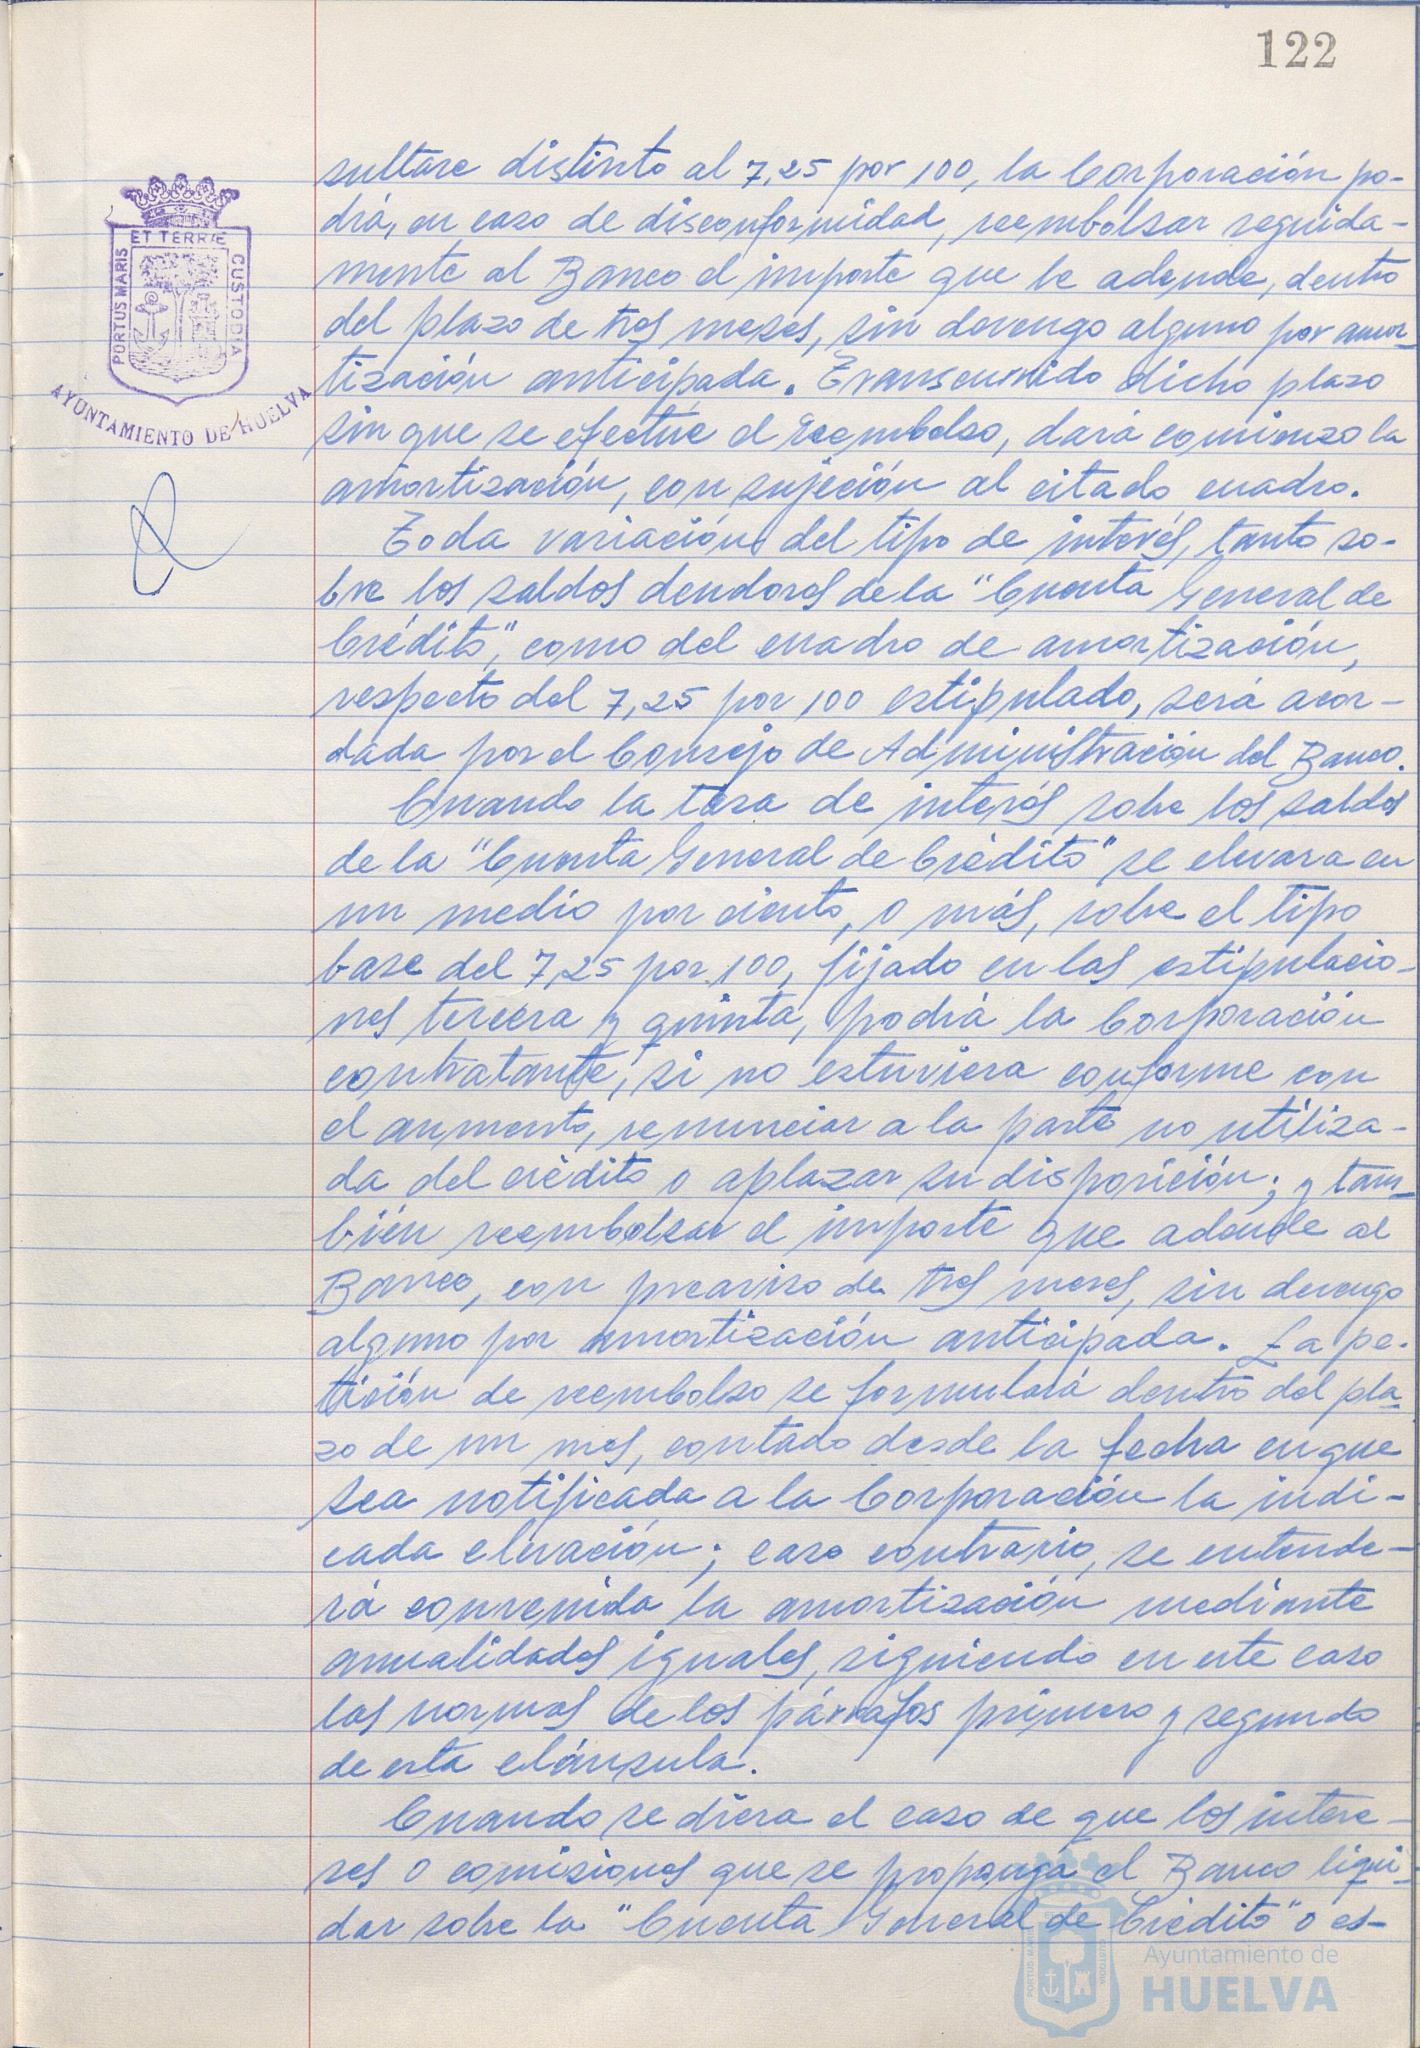 122
sultare distinto al 7,25 por 100, la Corporación po-
drá, en caso de disconformidad, reembolsar seguida-
mente al Banco el importe que le adeude, dentro
del plazo de tres meses, sin devengo alguno por amor-
tización anticipada. Transcurrido dicho plazo
sin que se efectúe el reembolso, dará comienzo la
amortización, con sujeción al citado cuadro.
Toda variación del tipo de interés, tanto so-
bre los saldos deudores de la "Cuenta General de
Crédito", como del cuadro de amortización,
respecto del 7,25 por 100 estipulado, será acor-
dada por el Consejo de Administración del Banco.
Cuando la tasa de interés sobre los saldos
de la "Cuenta General de Crédito" se elevara en
un medio por ciento, o más, sobre el tipo
base del 7,25 por 100, fijado en las estipulacio-
nes tercera y quinta, podrá la Corporación
contratante, si no estuviera conforme con
el aumento, renunciar a la parte no utiliza-
da del crédito o aplazar su disposición; y tam-
bién reembolsar el importe que adeude al
Banco, con preaviso de tres meses, sin devengo
alguno por amortización anticipada. La pe-
tición de reembolso se formulará dentro del pla-
zo de un mes, contado desde la fecha en que
sea notificada a la Corporación la indi-
cada elevación; caso contrario, se entende-
rá convenida la amortización mediante
anualidades iguales, siguiendo en este caso
las normas de los párrafos primero y segundo
de esta cláusula.
Cuando se diera el caso de que los intere-
ses o comisiones que se proponga el Banco liqui-
dar sobre la "Cuenta General de Crédito" o es-
PORTUS MARIS
ET TERRÆ
CUSTODIA
AYUNTAMIENTO DE HUELVA
Ayuntamiento de
HUELVA